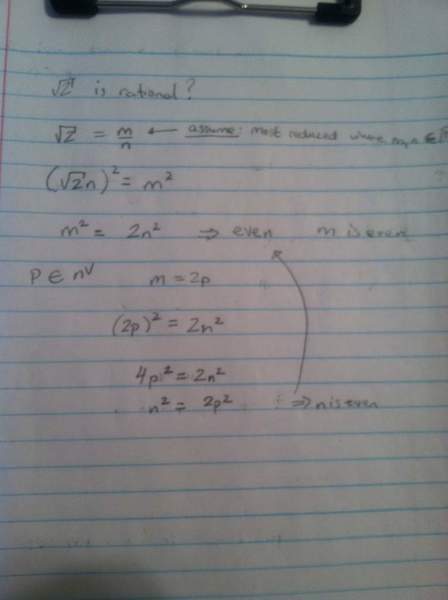 √2 is rational?
√2 = m/n ← assume: most reduced where m,n ∈
(√2 n)² = m²
m² = 2n² ⇒ even m is even
P ∈ m = 2p
(2p)² = 2n²
4p² = 2n²
n² = 2p² ⇒ n is even